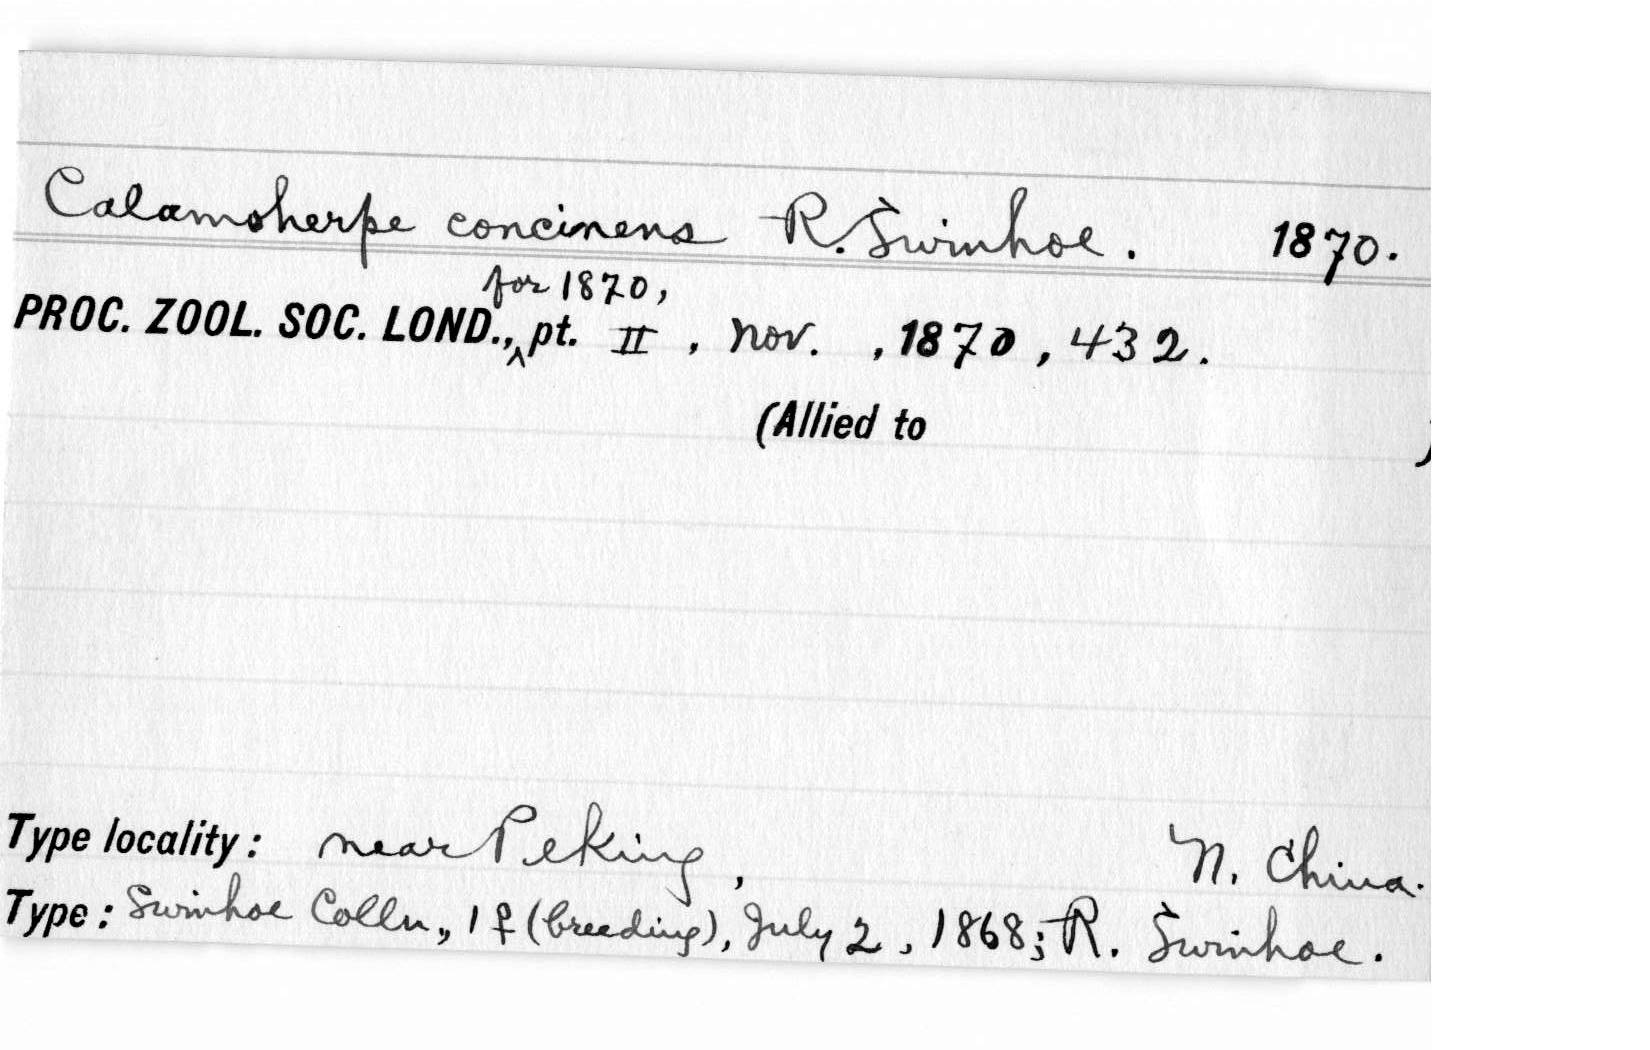 Calamoherpe concinens R. Swinhoe. 1870.
for 1870,
PROC. ZOOL. SOC. LOND., ^ pt. II, Nov., 1870, 432.
(Allied to )
Type locality: near Peking, N. China.
Type: Swinhoe Colln., 1♀ (breeding), July 2, 1868; R. Swinhoe.